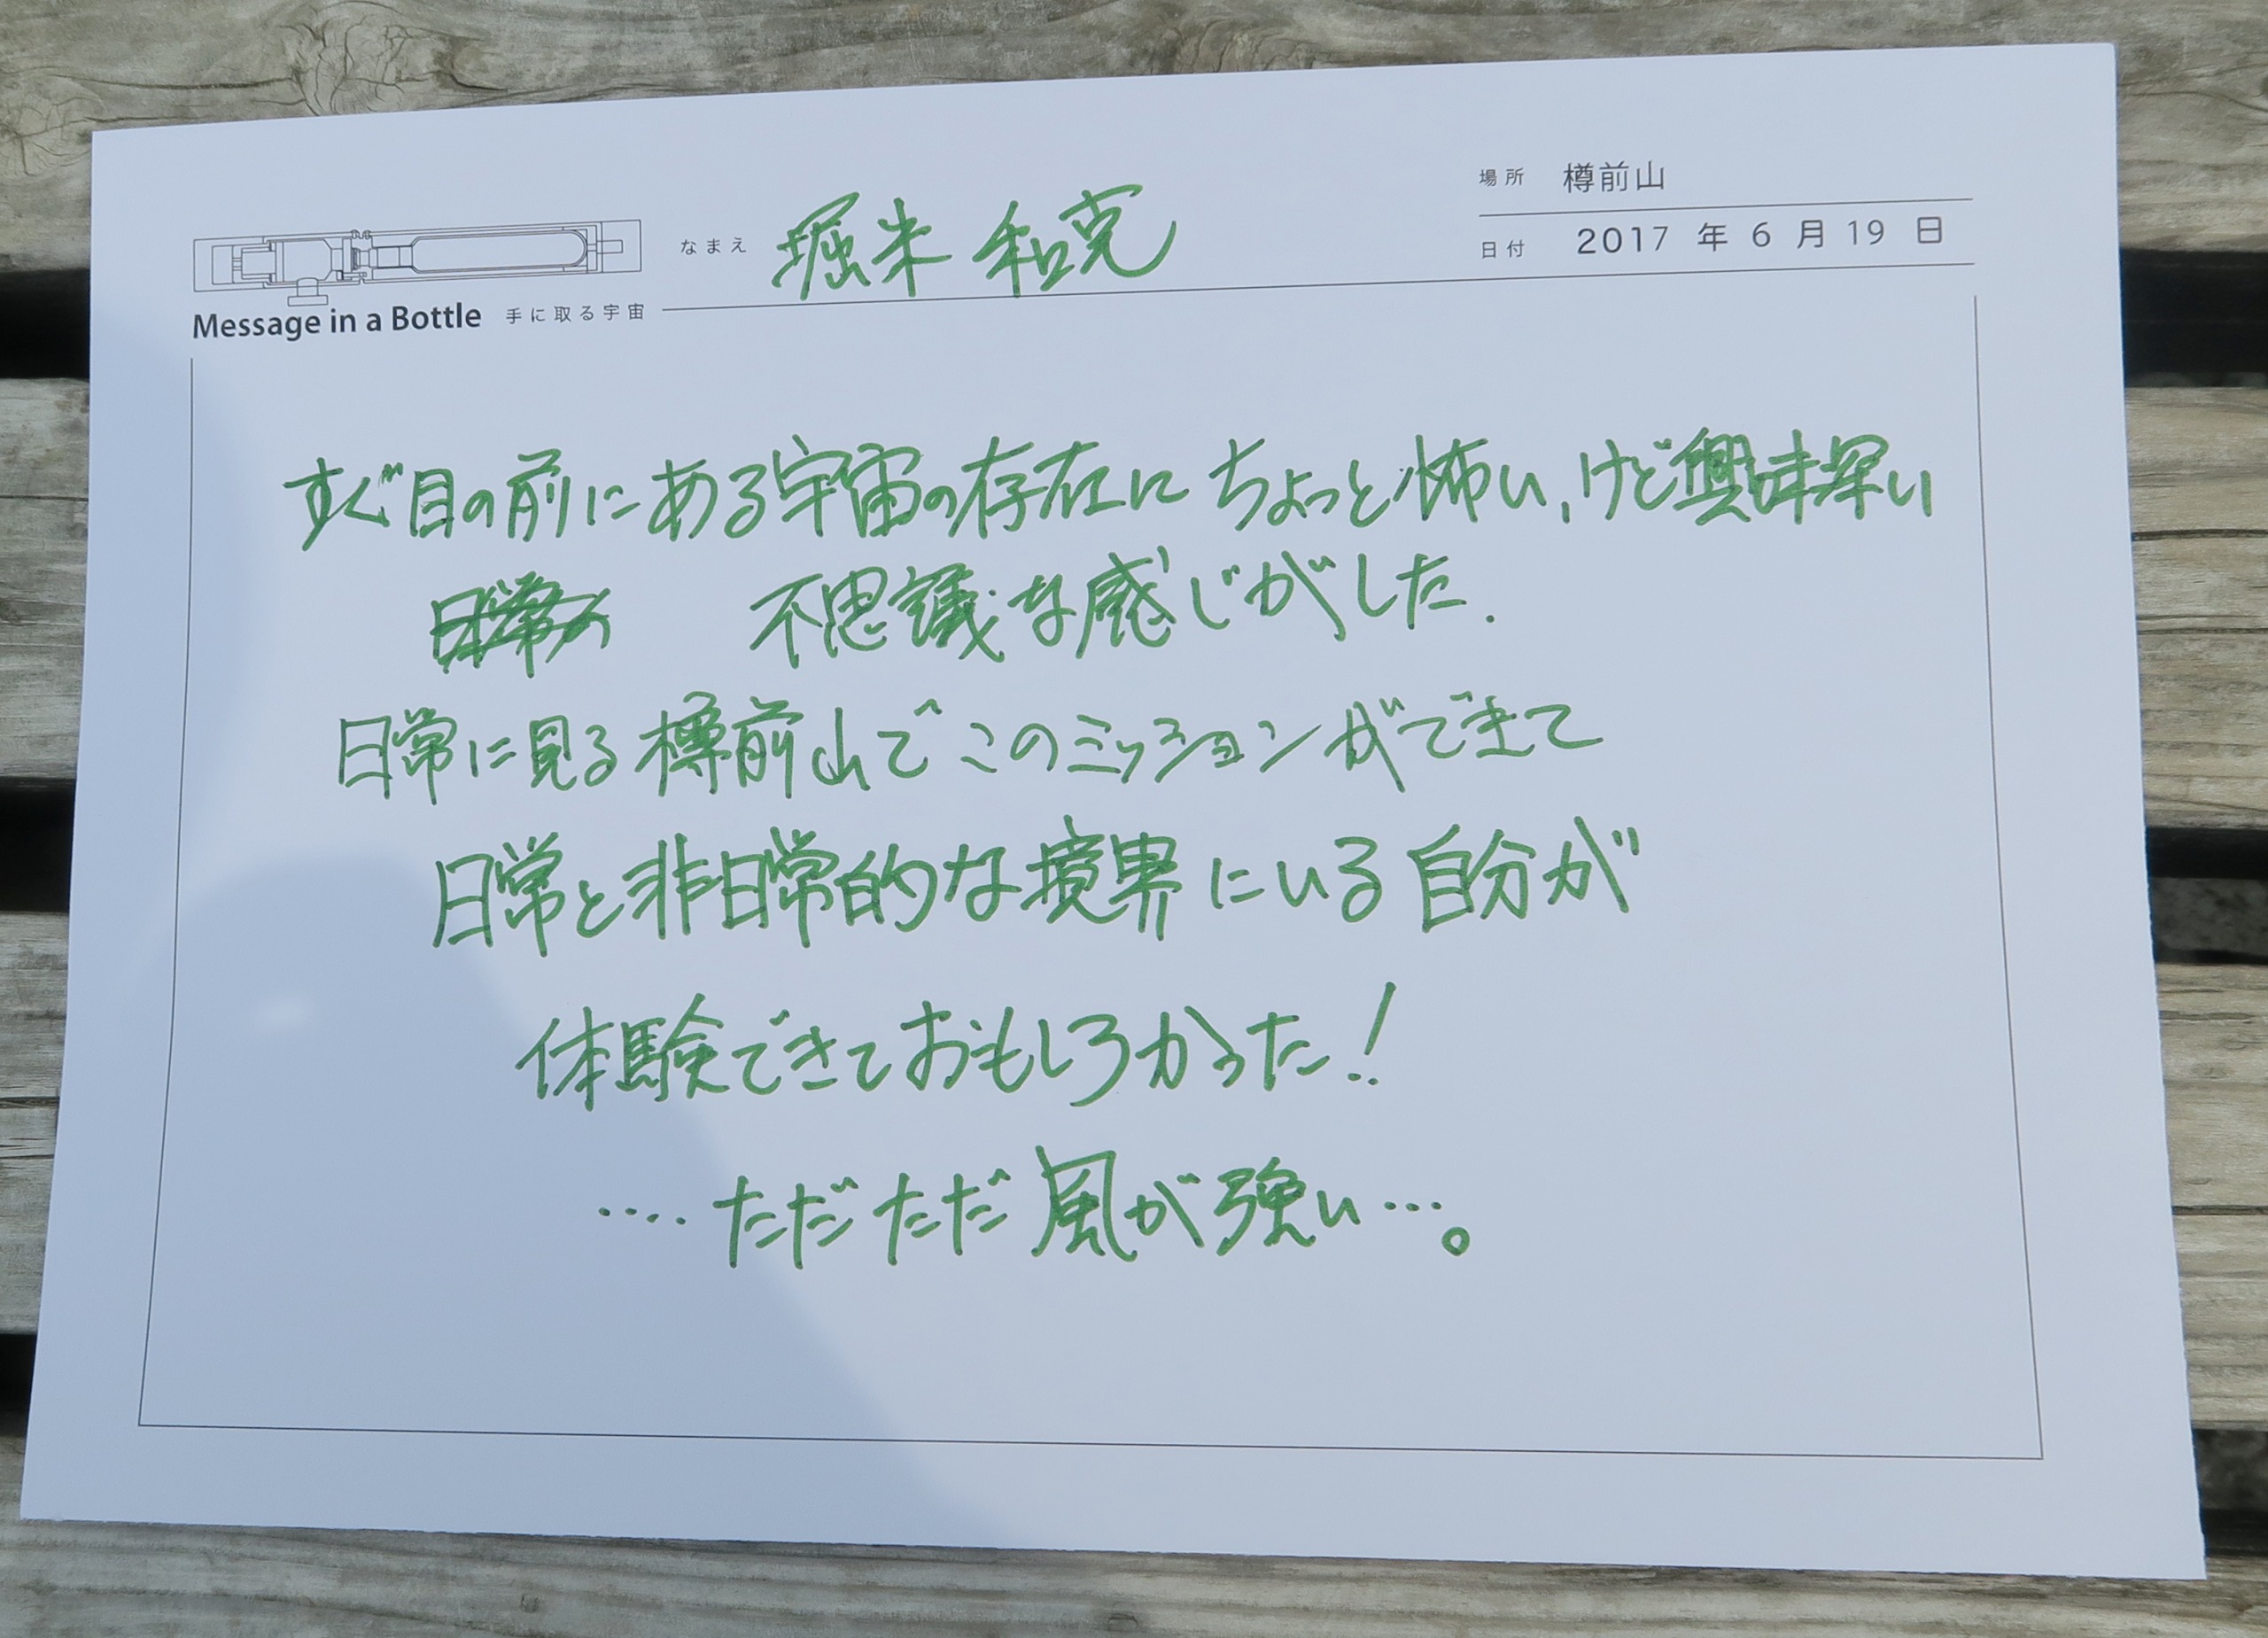 場所 樽前山
なまえ 堀米 和克
日付 2017 年 6 月 19 日
Message in a Bottle 手に取る宇宙
すぐ目の前にある宇宙の存在に ちょっと怖い、けど興味深い
不思議な感じがした.
日常に見る樽前山で このミッションができて
日常と非日常的な境界にいる自分が
体験できておもしろかった!
‥‥ただただ風が強い…。